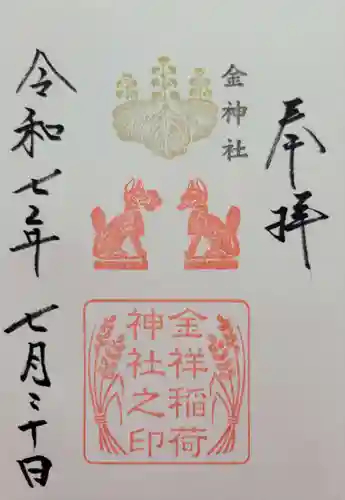 奉拝
金神社
金祥稲荷
神社之印
令和七年 七月三十日